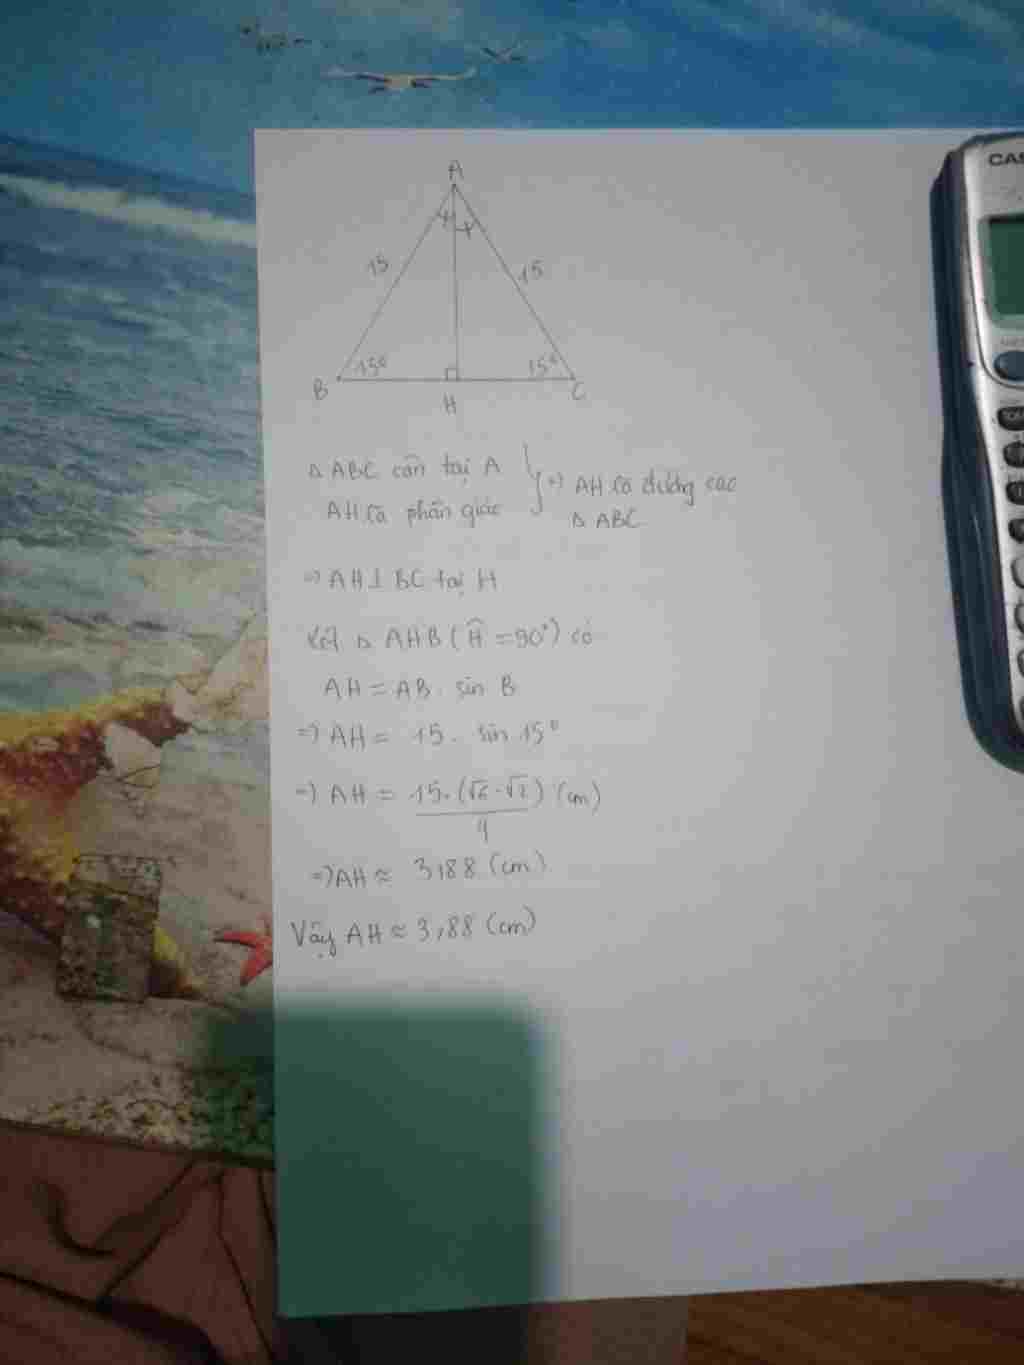 A
15
15
15°
15°
B
H
C
Δ ABC cân tại A
AH là phân giác
=> AH là đường cao
Δ ABC
=> AH ⊥ BC tại H
Xét Δ AHB (Ĥ = 90°) có
AH = AB . sin B
=> AH = 15 . sin 15°
=> AH = 15.(√6 - √2)/4 (cm)
=> AH ≈ 3,88 (cm)
Vậy AH ≈ 3,88 (cm)